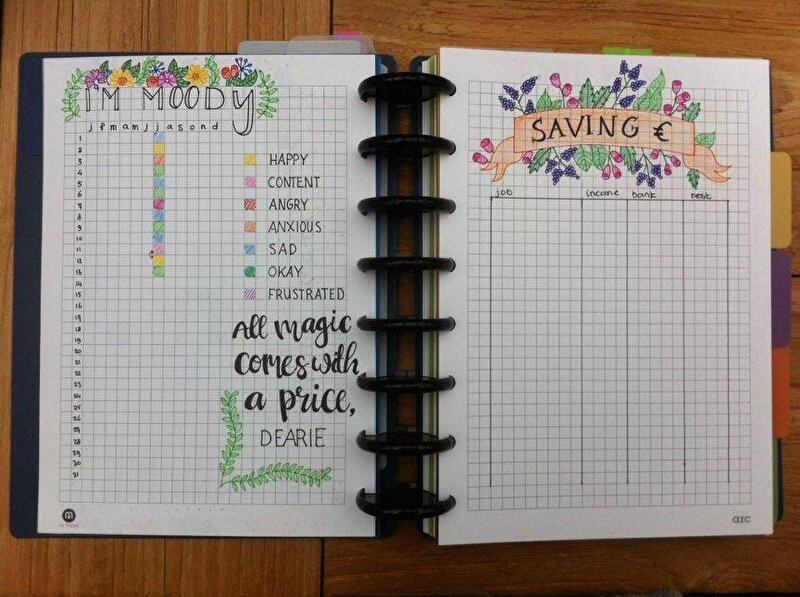 I'M MOODY
j f m a m j j a s o n d
1
2
3
4
5
6
7
8
9
10
11
12
13
14
15
16
17
18
19
20
21
22
23
24
25
26
27
28
29
30
31
HAPPY
CONTENT
ANGRY
ANXIOUS
SAD
OKAY
FRUSTRATED
All magic
comes with
a price,
DEARIE
SAVING €
job income bank rest
arc